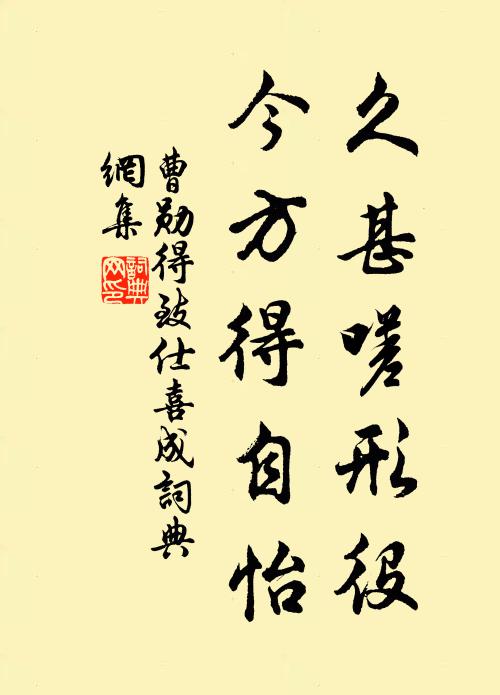 久甚嗟形役
今方得自怡
曹勛得致仕喜成詞典
網集
詞典網印